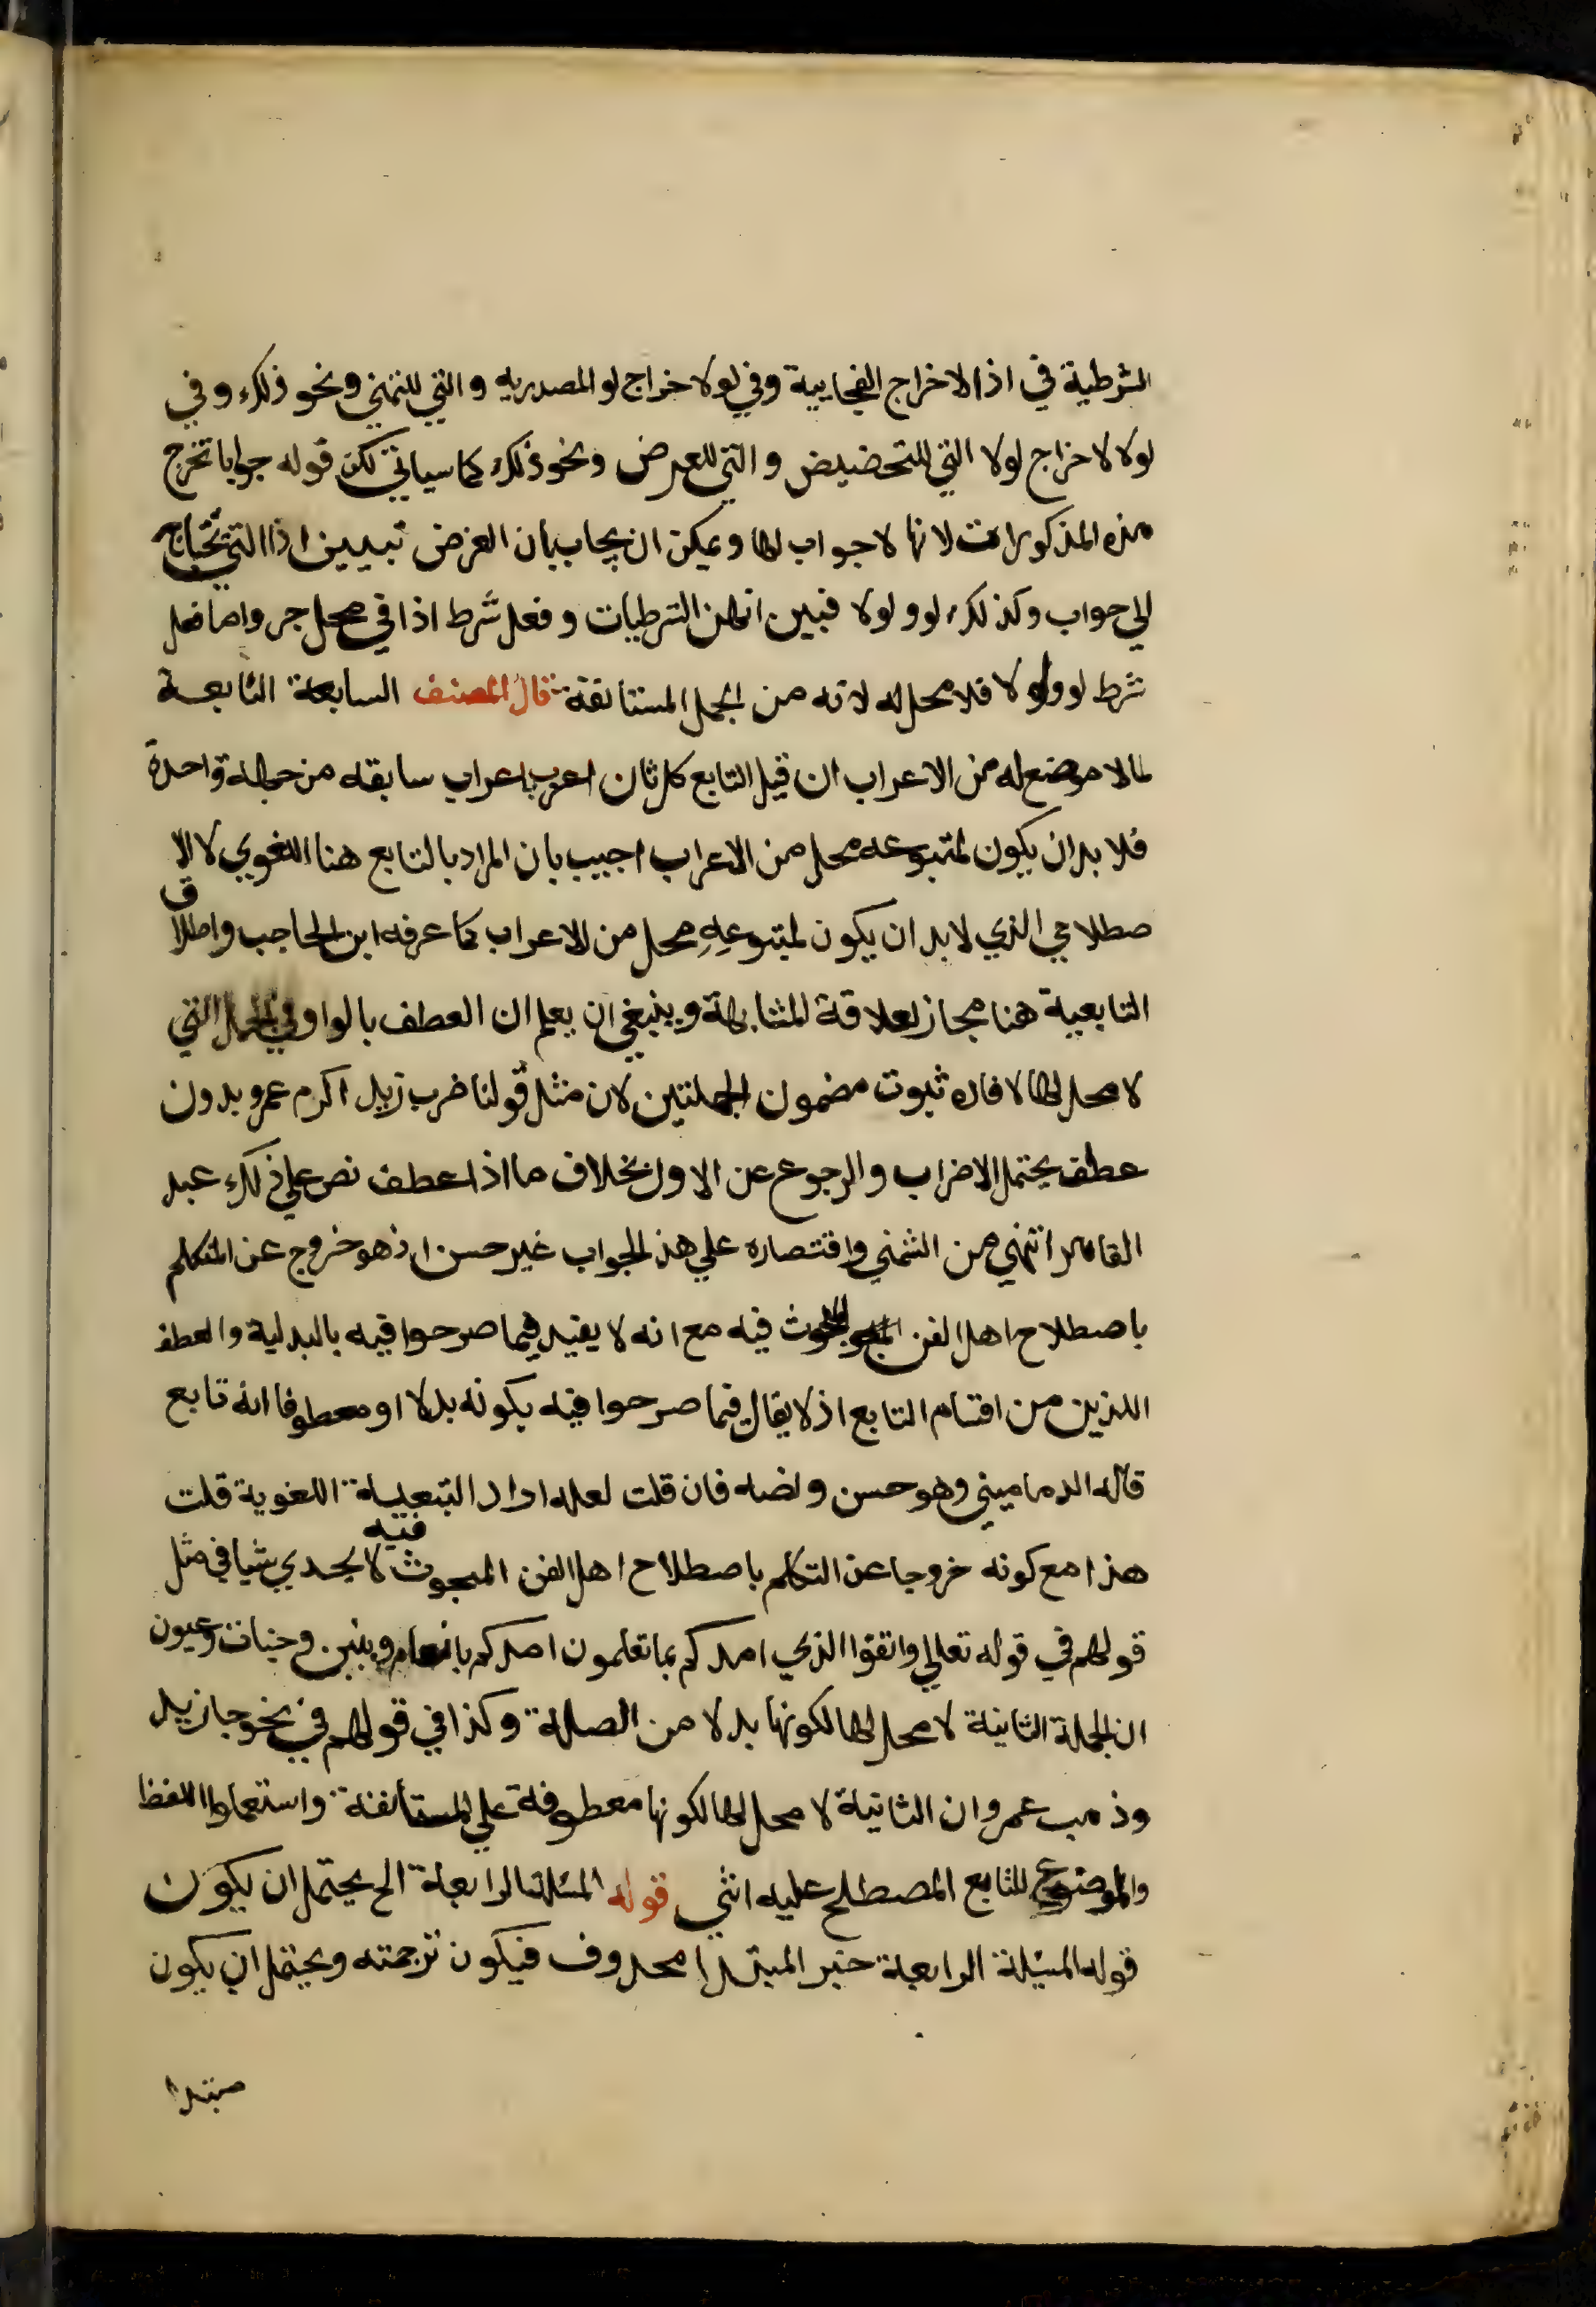 الشرطية في اذا لاخراج الفجايية وفي لو لاخراج لو المصدريه والتي للتمني ونحو ذلك وفي
لولا لاخراج لولا التي للتحضيض والتي للعرض ونحو ذلك كما سياتي لكن قوله جوابا تخرج
هذه المذكورات لانها لا جواب لها ويمكن ان يجاب بان الغرض تبيين اذا التي تحتاج
الي جواب وكذلك لو ولولا فبين انهن الشرطيات وفعل شرط اذا في محل جر واما فعل
شرط لو ولولا فلا محل له لانه من الجمل المستانفة قال المصنف السابعة التابعة
لما لا موضع له من الاعراب ان قيل التابع كل ثان اعرب باعراب سابقه من جهة واحدة
فلا بد ان يكون لمتبوعه محل من الاعراب اجيب بان المراد بالتابع هنا اللغوي لا الا
صطلاحي الذي لا بد ان يكون لمتبوعه محل من الاعراب كما عرفه ابن الحاجب واطلاق
التابعية هنا مجاز لعلاقة المشابهة وينبغي ان يعلم ان العطف بالواو في الجمل التي
لا محل لها لافاده ثبوت مضمون الجملتين لان مثل قولنا ضرب زيد اكرم عمرو بدون
عطف يحتمل الاضراب والرجوع عن الاول بخلاف ما اذا عطف نص علي ذلك عبد
القاهر انتهي من الشمني واقتصاره علي هذ الجواب غير حسن اذ هو خروج عن التكلم
باصطلاح اهل الفن المبحوث فيه مع انه لا يفيد فيما صرحوا فيه بالبدلية والعطف
اللذين من اقسام التابع اذ لا يقال فيما صرحوا فيه بكونه بدلا او معطوفا انه تابع
قاله الدماميني وهو حسن ونصه فان قلت لعله اراد التبعية اللغوية قلت
هذا مع كونه خروجا عن التكلم باصطلاح اهل الفن المبحوث فيه لا يجدي شيا في مثل
قولهم في قوله تعالي واتقوا الذي امدكم بما تعلمون امدكم بانعام وبنين وجنات وعيون
ان الجملة الثانية لا محل لها لكونها بدلا من الصلة وكذا في قولهم في نحو جا زيد
وذهب عمرو ان الثانية لا محل لها لكونها معطوفة علي المستأنفة واستعملوا اللفظ
والموضوع للتابع المصطلح عليه انتهي قوله المسئلة الرابعة الخ يحتمل ان يكون
قوله المسئلة الرابعة خبر المبتدا محدوف فيكون ترجمته ويحتمل ان يكون
مبتدا